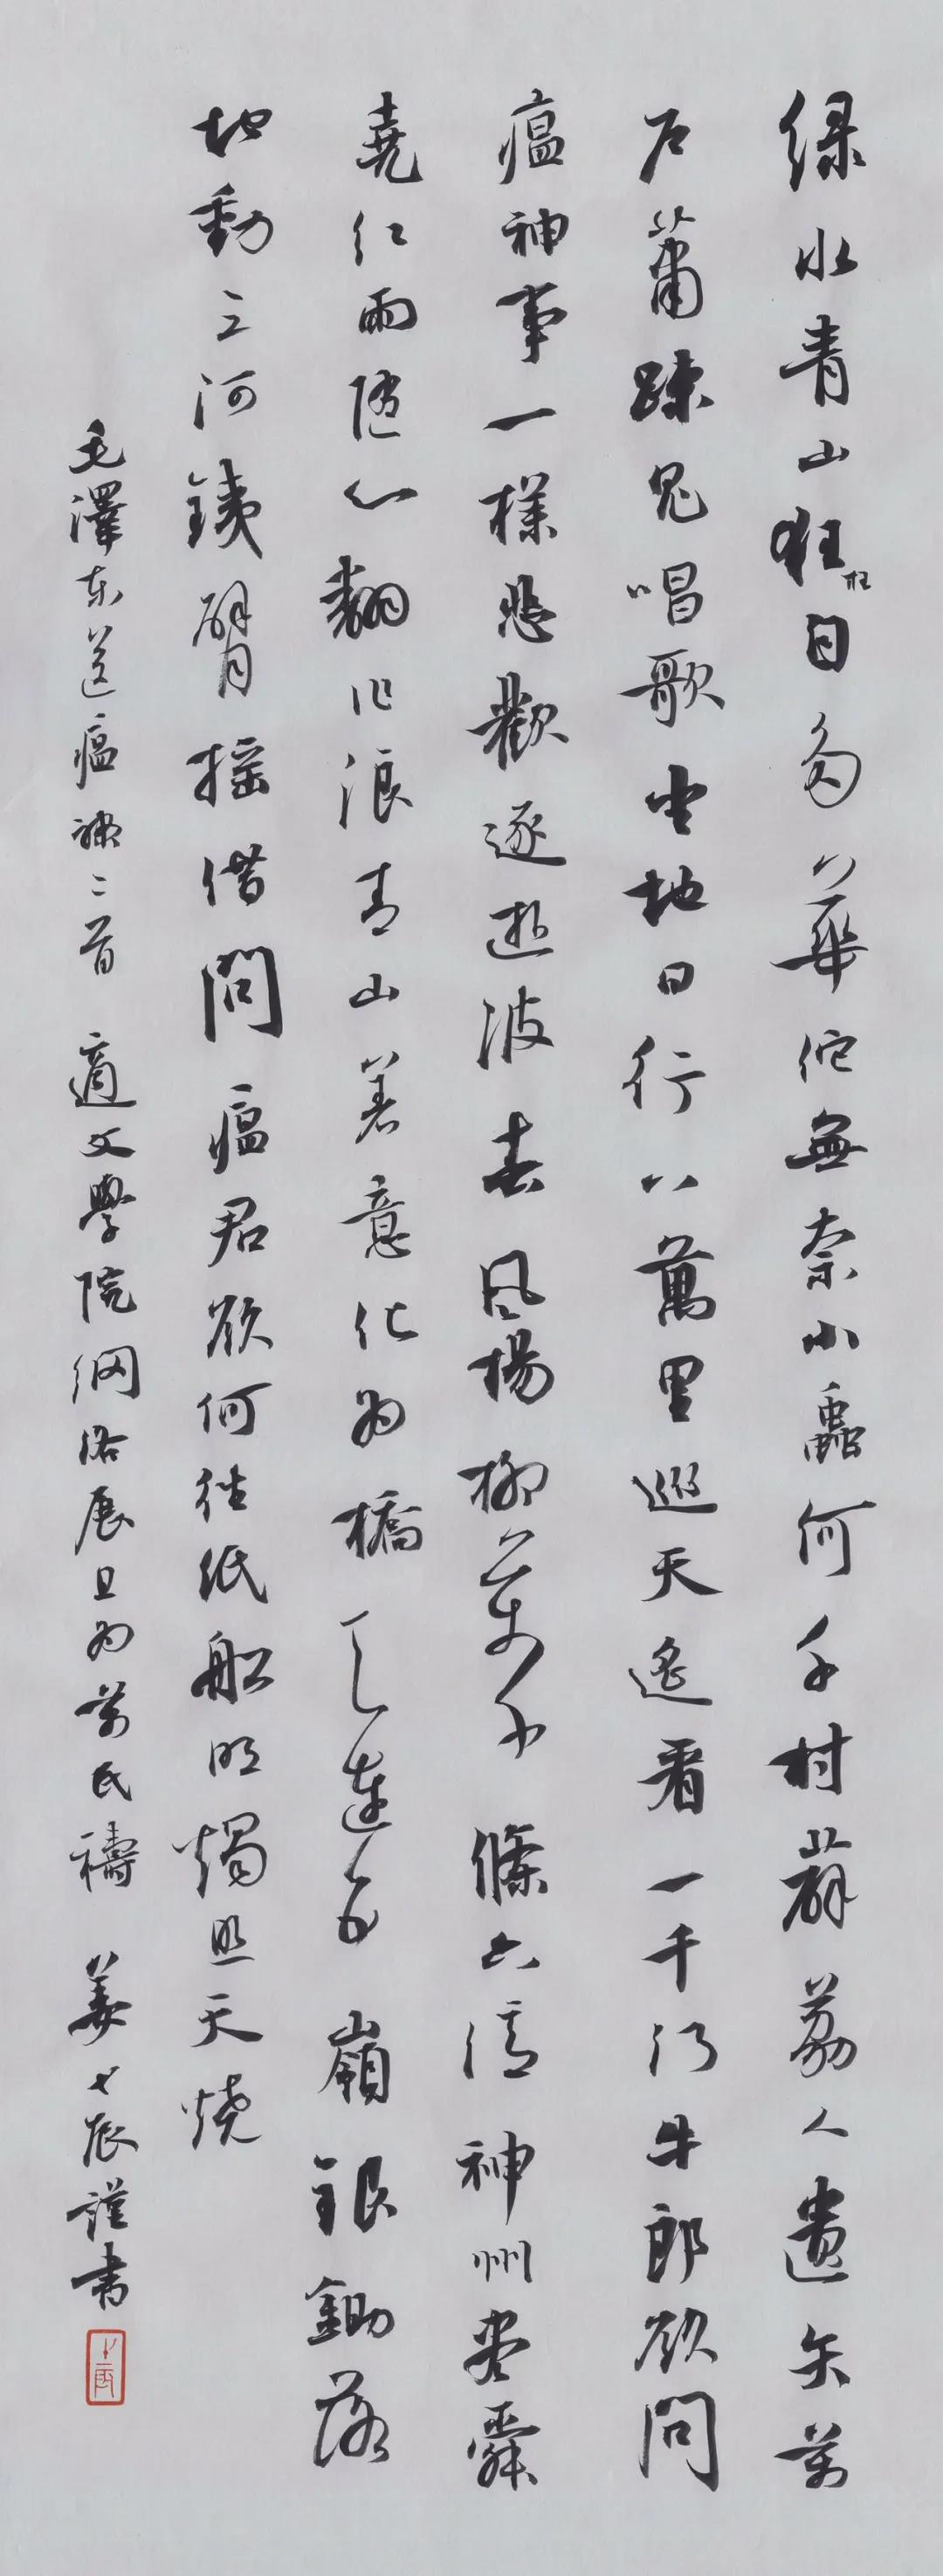 绿水青山狂枉自多華佗無奈小蟲何千村薜荔人遺矢萬
户蕭疎鬼唱歌坐地日行八萬里巡天遙看一千河牛郎欲問
瘟神事一樣悲歡逐逝波春風楊柳萬千條六億神州盡舜
堯红雨隨心翻作浪青山着意化为橋天連五嶺銀鋤落
地動三河鐵臂搖借問瘟君欲何往纸船明燭照天燒
毛澤东送瘟神二首 適文學院網络展且为萬民禱 姜七辰謹書